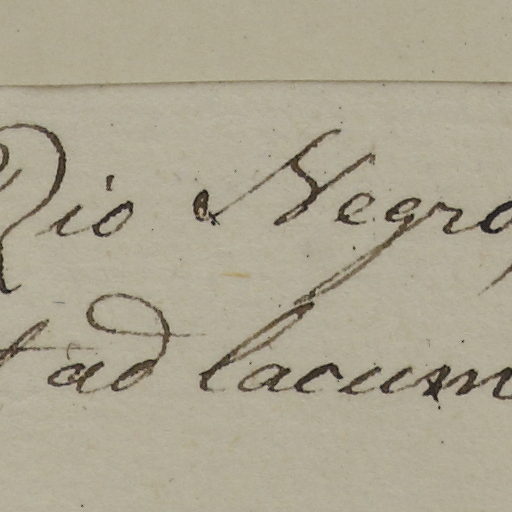 Rio Negro,
ad lacum